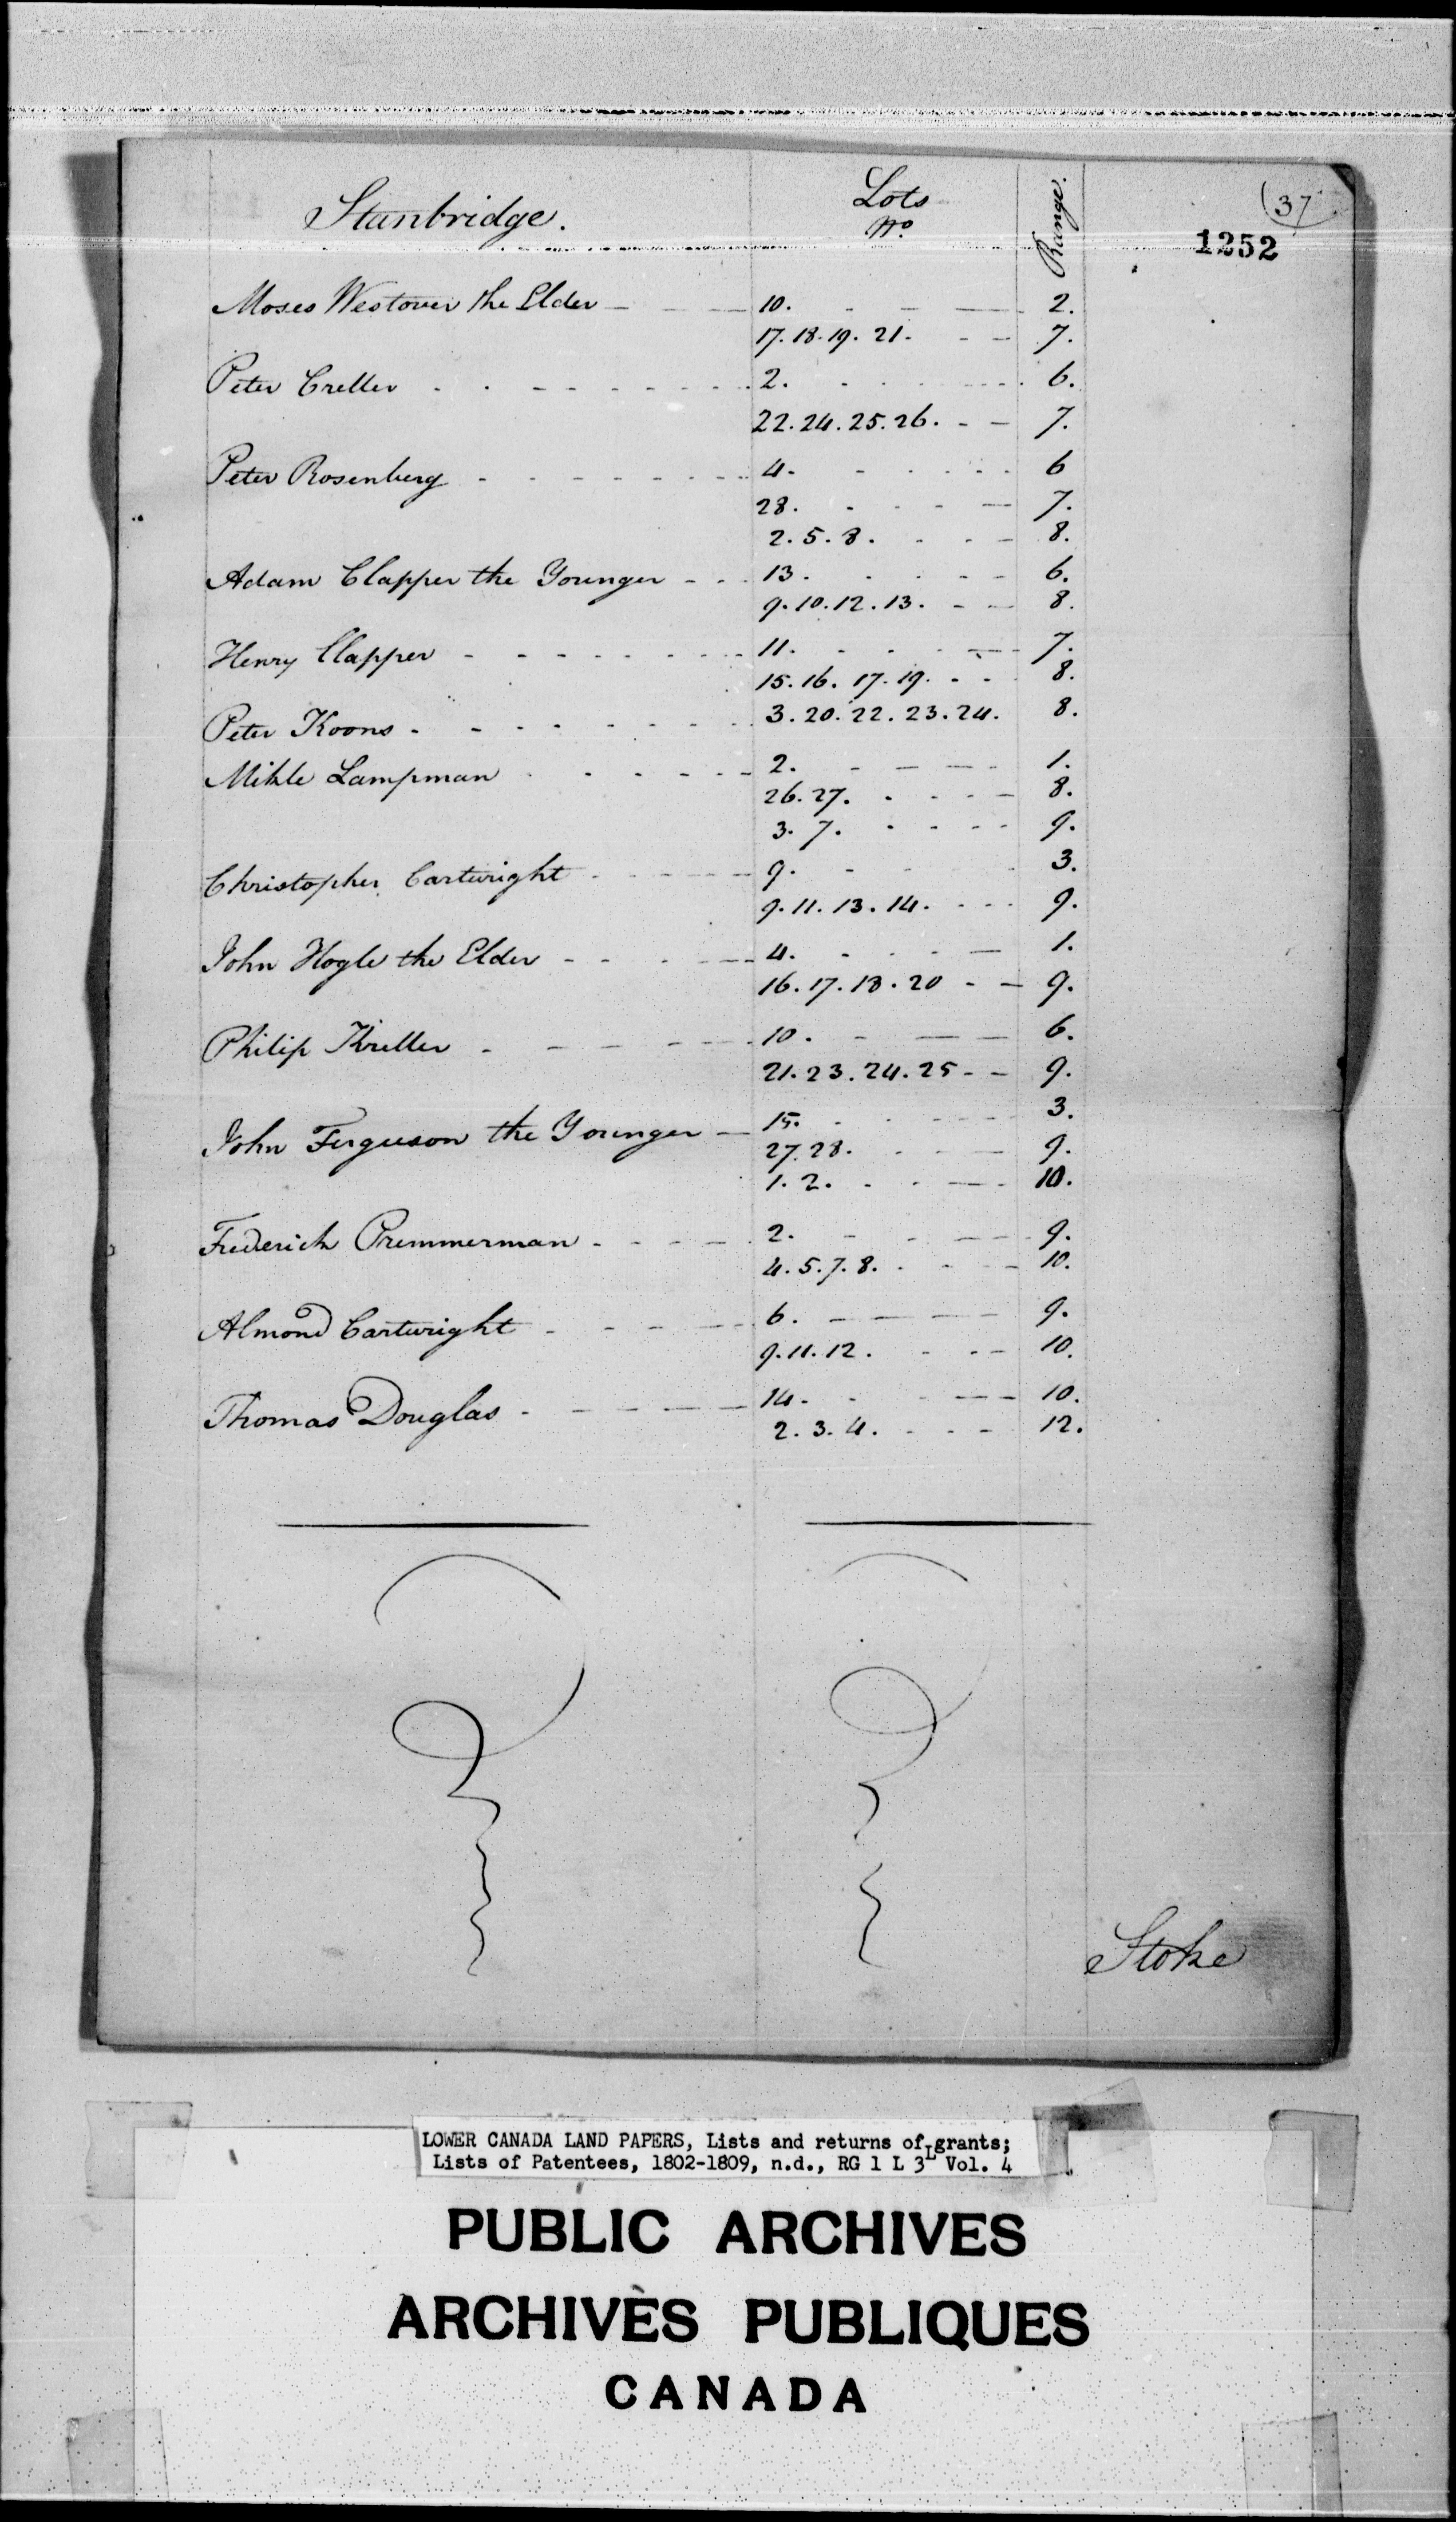 (37
1252
Stanbridge. Lots No. Range.
Moses Westover the Elder - - - 10. - - - 2.
17. 18. 19. 21. - - 7.
Peter Creller - - - - - 2. - - - 6.
22. 24. 25. 26. - - 7.
Peter Rosenberg - - - - - 4. - - - 6
28. - - - 7.
2. 5. 8. - - - 8.
Adam Clapper the Younger - - - 13. - - - 6.
9. 10. 12. 13. - - 8.
Henry Clapper - - - - - 11. - - - 7.
15. 16. 17. 19. - - 8.
Peter Koons - - - - - 3. 20. 22. 23. 24. 8.
Mikle Lampman - - - - - 2. - - - 1.
26. 27. - - - 8.
3. 7. - - - 9.
Christopher Cartwright - - - 9. - - - 3.
9. 11. 13. 14. - - - 9.
John Hogle the Elder - - - 4. - - - 1.
16. 17. 18. 20 - - 9.
Philip Kreller - - - - - 10. - - - 6.
21. 23. 24. 25 - - 9.
John Ferguson the Younger - 15. - - - 3.
27. 28. - - - 9.
1. 2. - - - 10.
Frederick Premmerman - - - 2. - - - 9.
4. 5. 7. 8. - - - 10.
Almond Cartwright - - - - 6. - - - 9.
9. 11. 12. - - - 10.
Thomas Douglas - - - - - 14. - - - 10.
2. 3. 4. - - - 12.
Stoke
LOWER CANADA LAND PAPERS, Lists and returns of grants;
Lists of Patentees, 1802-1809, n.d., RG 1 L 3L Vol. 4
PUBLIC ARCHIVES
ARCHIVES PUBLIQUES
CANADA